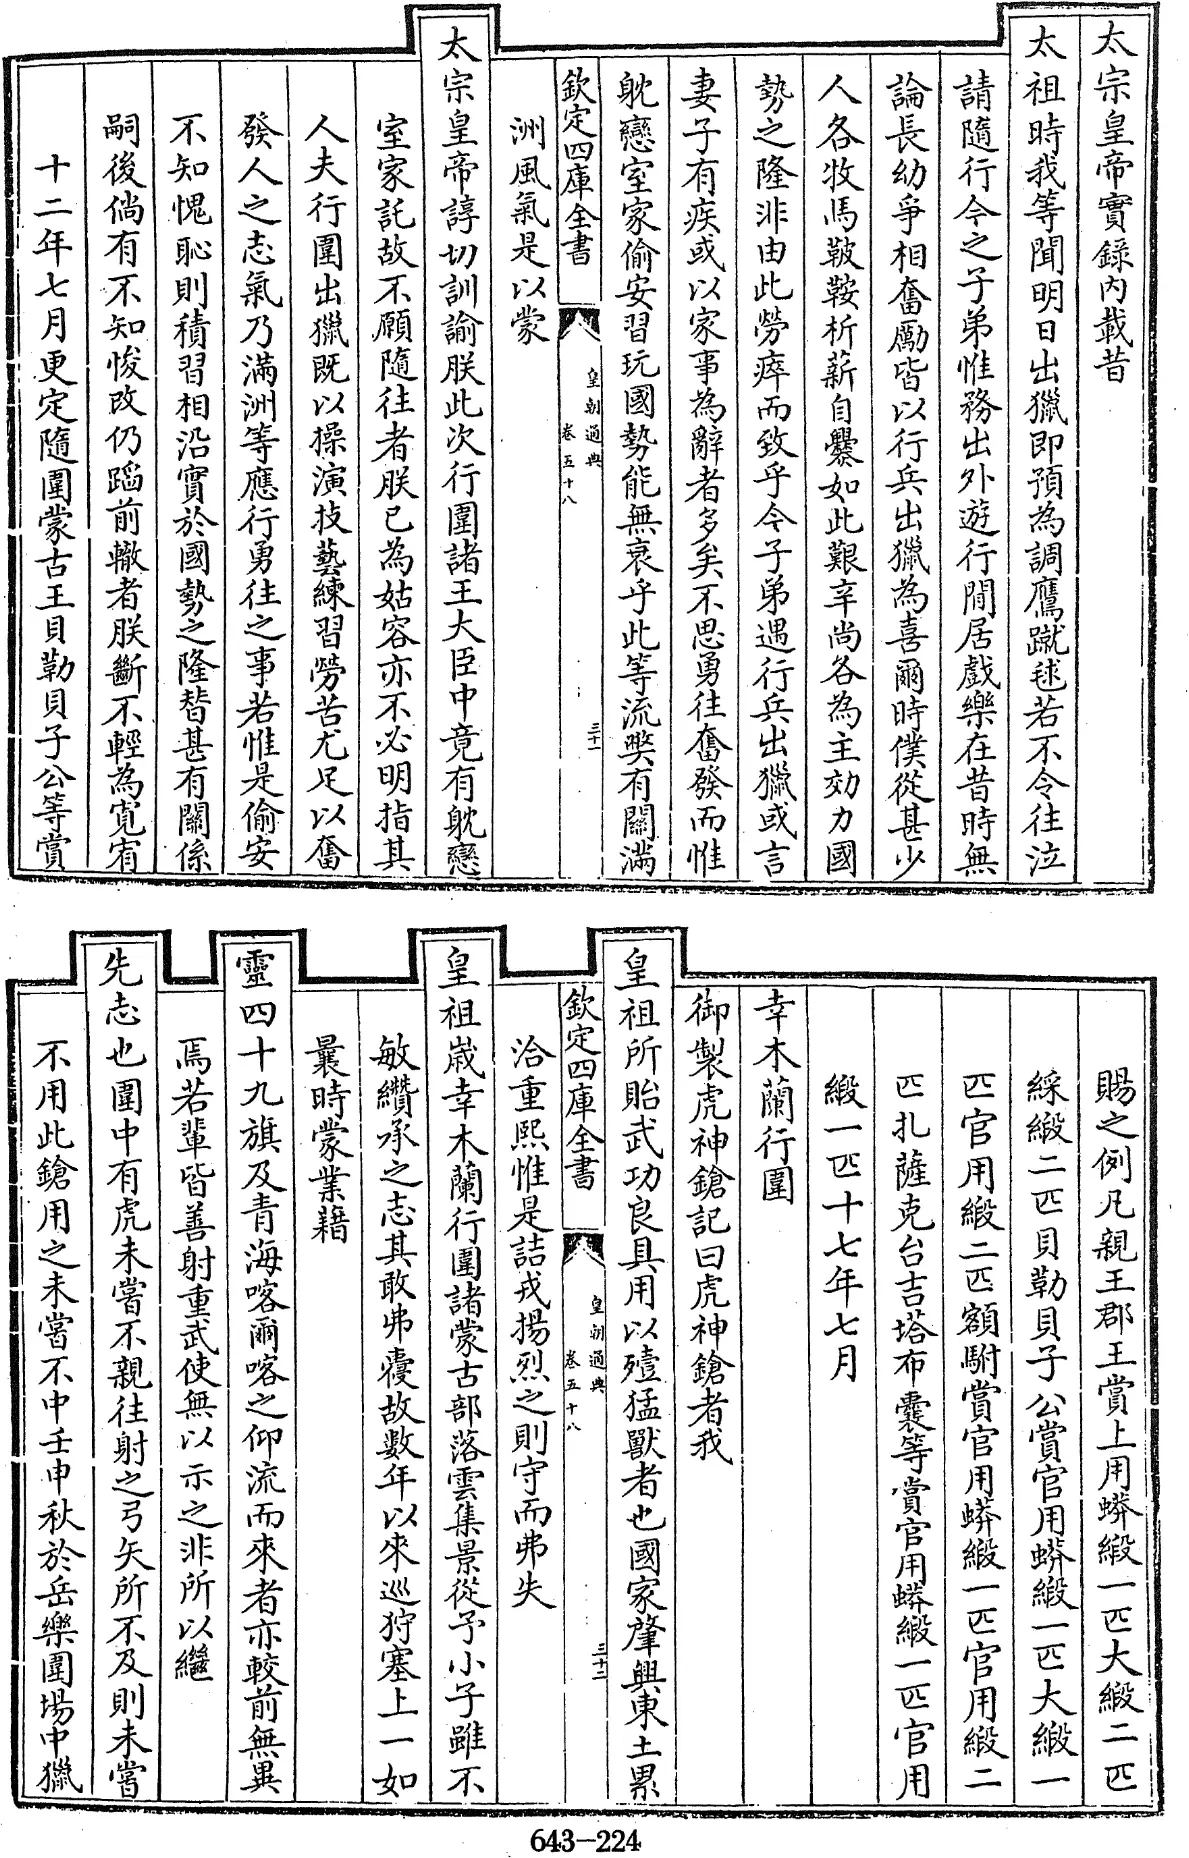 太宗皇帝實錄內載昔
太祖時我等聞明日出獵即預為調鷹蹴毬若不令往泣
請隨行今之子弟惟務出外遊行閒居戲樂在昔時無
論長幼爭相奮勵皆以行兵出獵為喜爾時僕從甚少
人各牧馬鞍鞍析薪自爨如此艱辛尚各為主効力國
勢之隆非由此勞瘁而致乎今子弟遇行兵出獵或言
妻子有疾或以家事為辭者多矣不思勇往奮發而惟
躭戀室家偷安習玩國勢能無衰乎此等流獘有關滿
欽定四庫全書
皇朝通典
卷五十八
三十一
洲風氣是以蒙
太宗皇帝諄切訓諭朕此次行圍諸王大臣中竟有躭戀
室家託故不願隨往者朕已為姑容亦不必明指其
人夫行圍出獵既以操演技藝練習勞苦尤足以奮
發人之志氣乃滿洲等應行勇往之事若惟是偷安
不知愧恥則積習相沿實於國勢之隆替甚有關係
嗣後倘有不知悛改仍蹈前轍者朕斷不輕為寬宥
十二年七月更定隨圍蒙古王貝勒貝子公等賞
賜之例凡親王郡王賞上用蟒緞一匹大緞二匹
綵緞二匹貝勒貝子公賞官用蟒緞一匹大緞一
匹官用緞二匹額駙賞官用蟒緞一匹官用緞二
匹扎薩克台吉塔布囊等賞官用蟒緞一匹官用
緞一匹十七年七月
幸木蘭行圍
御製虎神鎗記曰虎神鎗者我
皇祖所貽武功良具用以殪猛獸者也國家肇興東土累
欽定四庫全書
皇朝通典
卷五十八
三十二
洽重熙惟是詰戎揚烈之則守而弗失
皇祖歲幸木蘭行圍諸蒙古部落雲集景從予小子雖不
敏纘承之志其敢弗虔故數年以來巡狩塞上一如
曩時蒙業藉
靈四十九旗及青海喀爾喀之仰流而來者亦較前無異
焉若輩皆善射重武使無以示之非所以繼
先志也圍中有虎未嘗不親往射之弓矢所不及則未嘗
不用此鎗用之未嘗不中壬申秋於岳樂圍場中獵
643-224